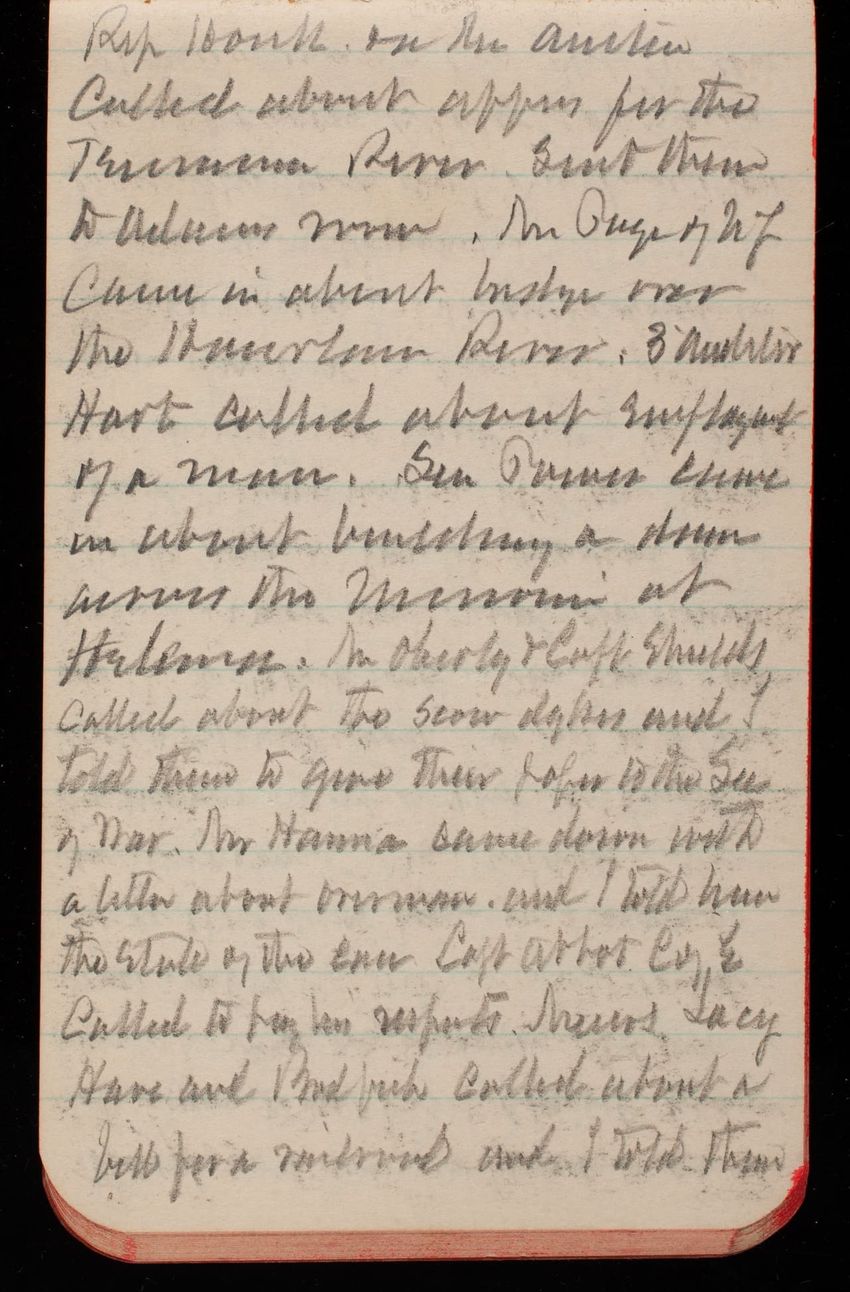 Rep Houk. on the
Called about approp for the
Tennessee River. Sent them
to Adams room. Mr Page of NY
Came in about bridge over
the Haurlam River. 3d Auditor
Hart called about employmt
of a man. Sen Power came
in about building a dam
across the Missouri at
Helena. Mr Oberly & Capt Shields
called about the scow dykes and I
told them to give their to the Sec
of War. Mr Hanna came down with
a letter about overman. and I told him
the state of the case Capt Abbot. Co, E
Called to pay his respects. Messrs Lacy
Hare and called about a
bill for a railroad and I told them